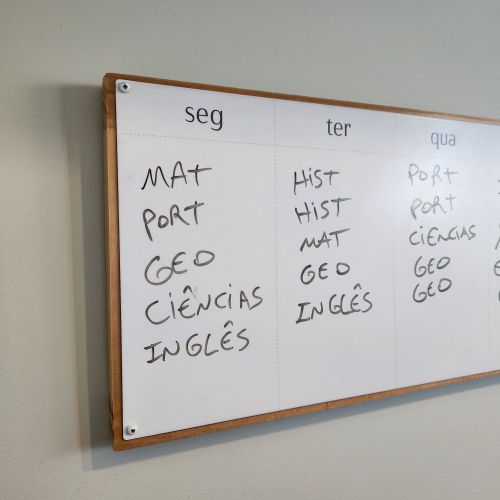 seg
MAT
PORT
GEO
CIÊNCIAS
INGLÊS
ter
HIST
HIST
MAT
GEO
INGLÊS
qua
PORT
PORT
CIENCIAS
GEO
GEO